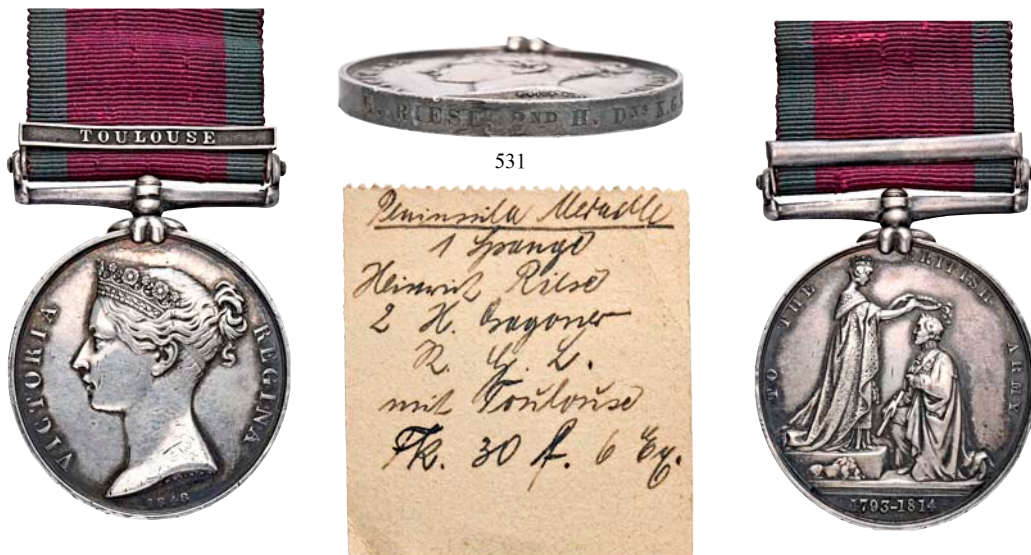 TOULOUSE
VICTORIA REGINA
1848
H. RIESE, 2ND H. DNS K.G.
531
Peninsula Medaille
1 Spange
Heinrich Riese
2 H. Dragoner
K. G. L.
mit Toulouse
Fk. 30 f. 6 Ex.
TO THE BRITISH ARMY
1793-1814